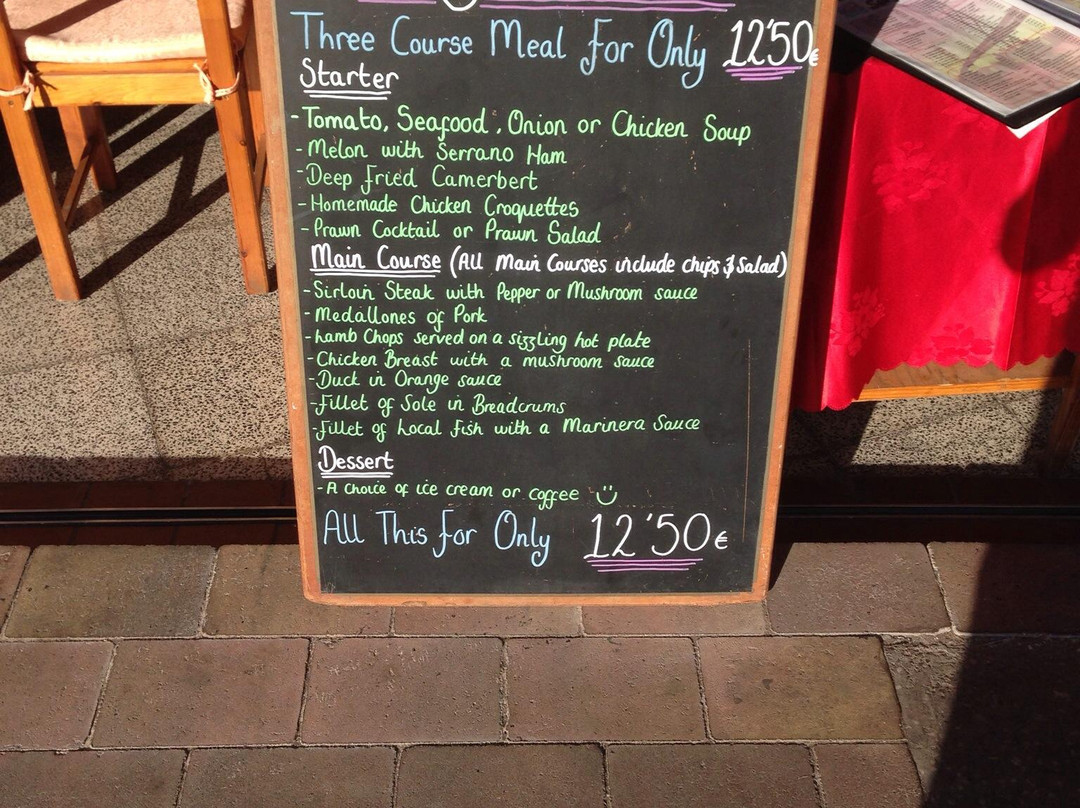 Three Course Meal For Only 12'50€
Starter
- Tomato, Seafood, Onion or Chicken Soup
- Melon with Serrano Ham
- Deep Fried Camerbert
- Homemade Chicken Croquettes
- Prawn Cocktail or Prawn Salad
Main Course (All Main Courses include chips & Salad)
- Sirloin Steak with Pepper or Mushroom sauce
- Medallones of Pork
- Lamb Chops served on a sizzling hot plate
- Chicken Breast with a mushroom sauce
- Duck in Orange sauce
- Fillet of Sole in Breadcrums
- Fillet of Local Fish with a Marinera Sauce
Dessert
- A choice of ice cream or coffee
All This For Only 12'50€